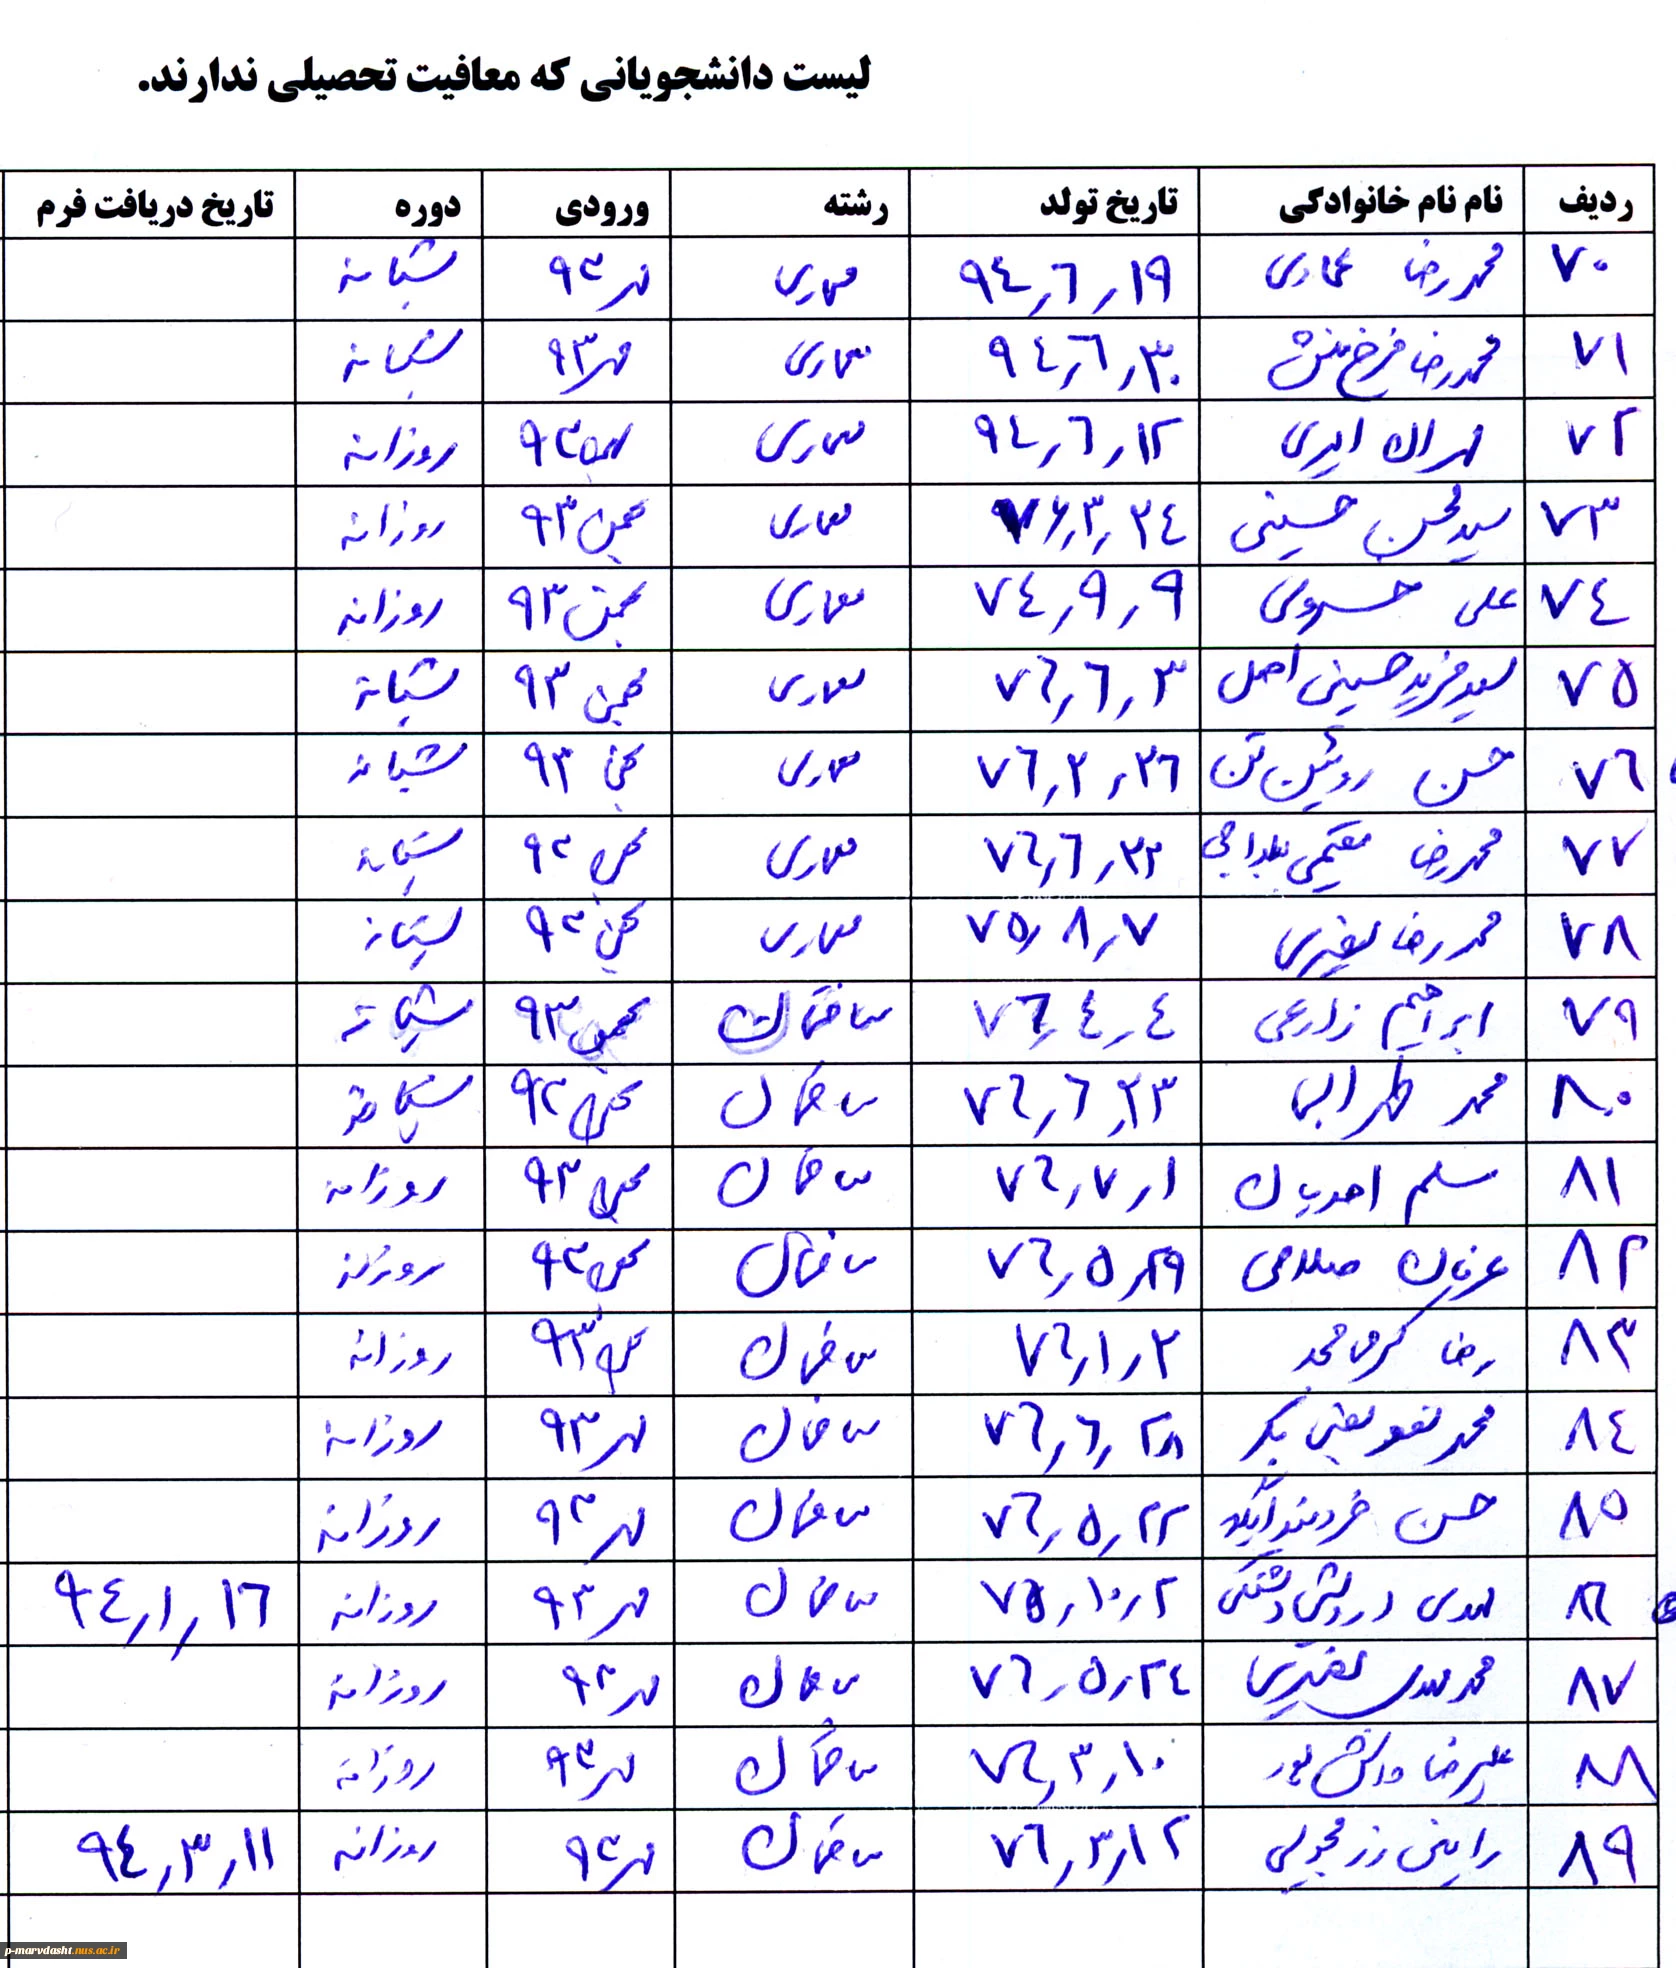 لیست دانشجویانی که معافیت تحصیلی ندارند.
ردیف نام نام خانوادگی تاریخ تولد رشته ورودی دوره تاریخ دریافت فرم
۷۰ محمدرضا عماری ۹۴٫۶٫۱۹ معماری مهر ۹۳ شبانه
۷۱ محمدرضا فرخ منش ۹۴٫۶٫۳۰ معماری مهر ۹۳ شبانه
۷۲ مهران امیری ۹۴٫۶٫۱۲ معماری ۹۳ روزانه
۷۳ سید محسن حسینی ۷۶٫۳٫۲۴ معماری بهمن ۹۳ روزانه
۷۴ علی خسروی ۷۴٫۹٫۹ معماری بهمن ۹۳ روزانه
۷۵ سید فرید حسینی اصل ۷۶٫۶٫۳ معماری بهمن ۹۳ شبانه
۷۶ حسن روئین تن ۷۶٫۲٫۲۶ معماری بهمن ۹۳ شبانه
۷۷ محمدرضا مقیمی ۷۶٫۶٫۲۲ معماری بهمن ۹۳ شبانه
۷۸ محمدرضا نصیری ۷۵٫۸٫۷ معماری بهمن ۹۳ شبانه
۷۹ ابراهیم زارعی ۷۶٫۴٫۴ ساختمان بهمن ۹۳ شبانه
۸۰ محمد ۷۶٫۶٫۲۳ ساختمان بهمن ۹۳ شبانه
۸۱ مسلم احمدیان ۷۶٫۷٫۱ ساختمان بهمن ۹۳ روزانه
۸۲ عرفان صلاحی ۷۶٫۵٫۲۹ ساختمان بهمن ۹۳ روزانه
۸۳ رضا ۷۶٫۱٫۲ ساختمان بهمن ۹۳ روزانه
۸۴ محمد ۷۶٫۶٫۲۸ ساختمان مهر ۹۳ روزانه
۸۵ حسن خردمند ۷۶٫۵٫۲۲ ساختمان مهر ۹۳ روزانه
۸۶ مهدی درویش دشتکی ۷۵٫۱۰٫۲ ساختمان مهر ۹۳ روزانه ۹۴٫۱٫۱۶
۸۷ محمد مهدی نصیری ۷۶٫۵٫۲۴ ساختمان مهر ۹۳ روزانه
۸۸ علیرضا دانش پور ۷۶٫۳٫۱۰ ساختمان مهر ۹۳ روزانه
۸۹ رامین رزمجویی ۷۶٫۳٫۱۲ ساختمان مهر ۹۳ روزانه ۹۴٫۳٫۱۱
p-marvdasht.nus.ac.ir